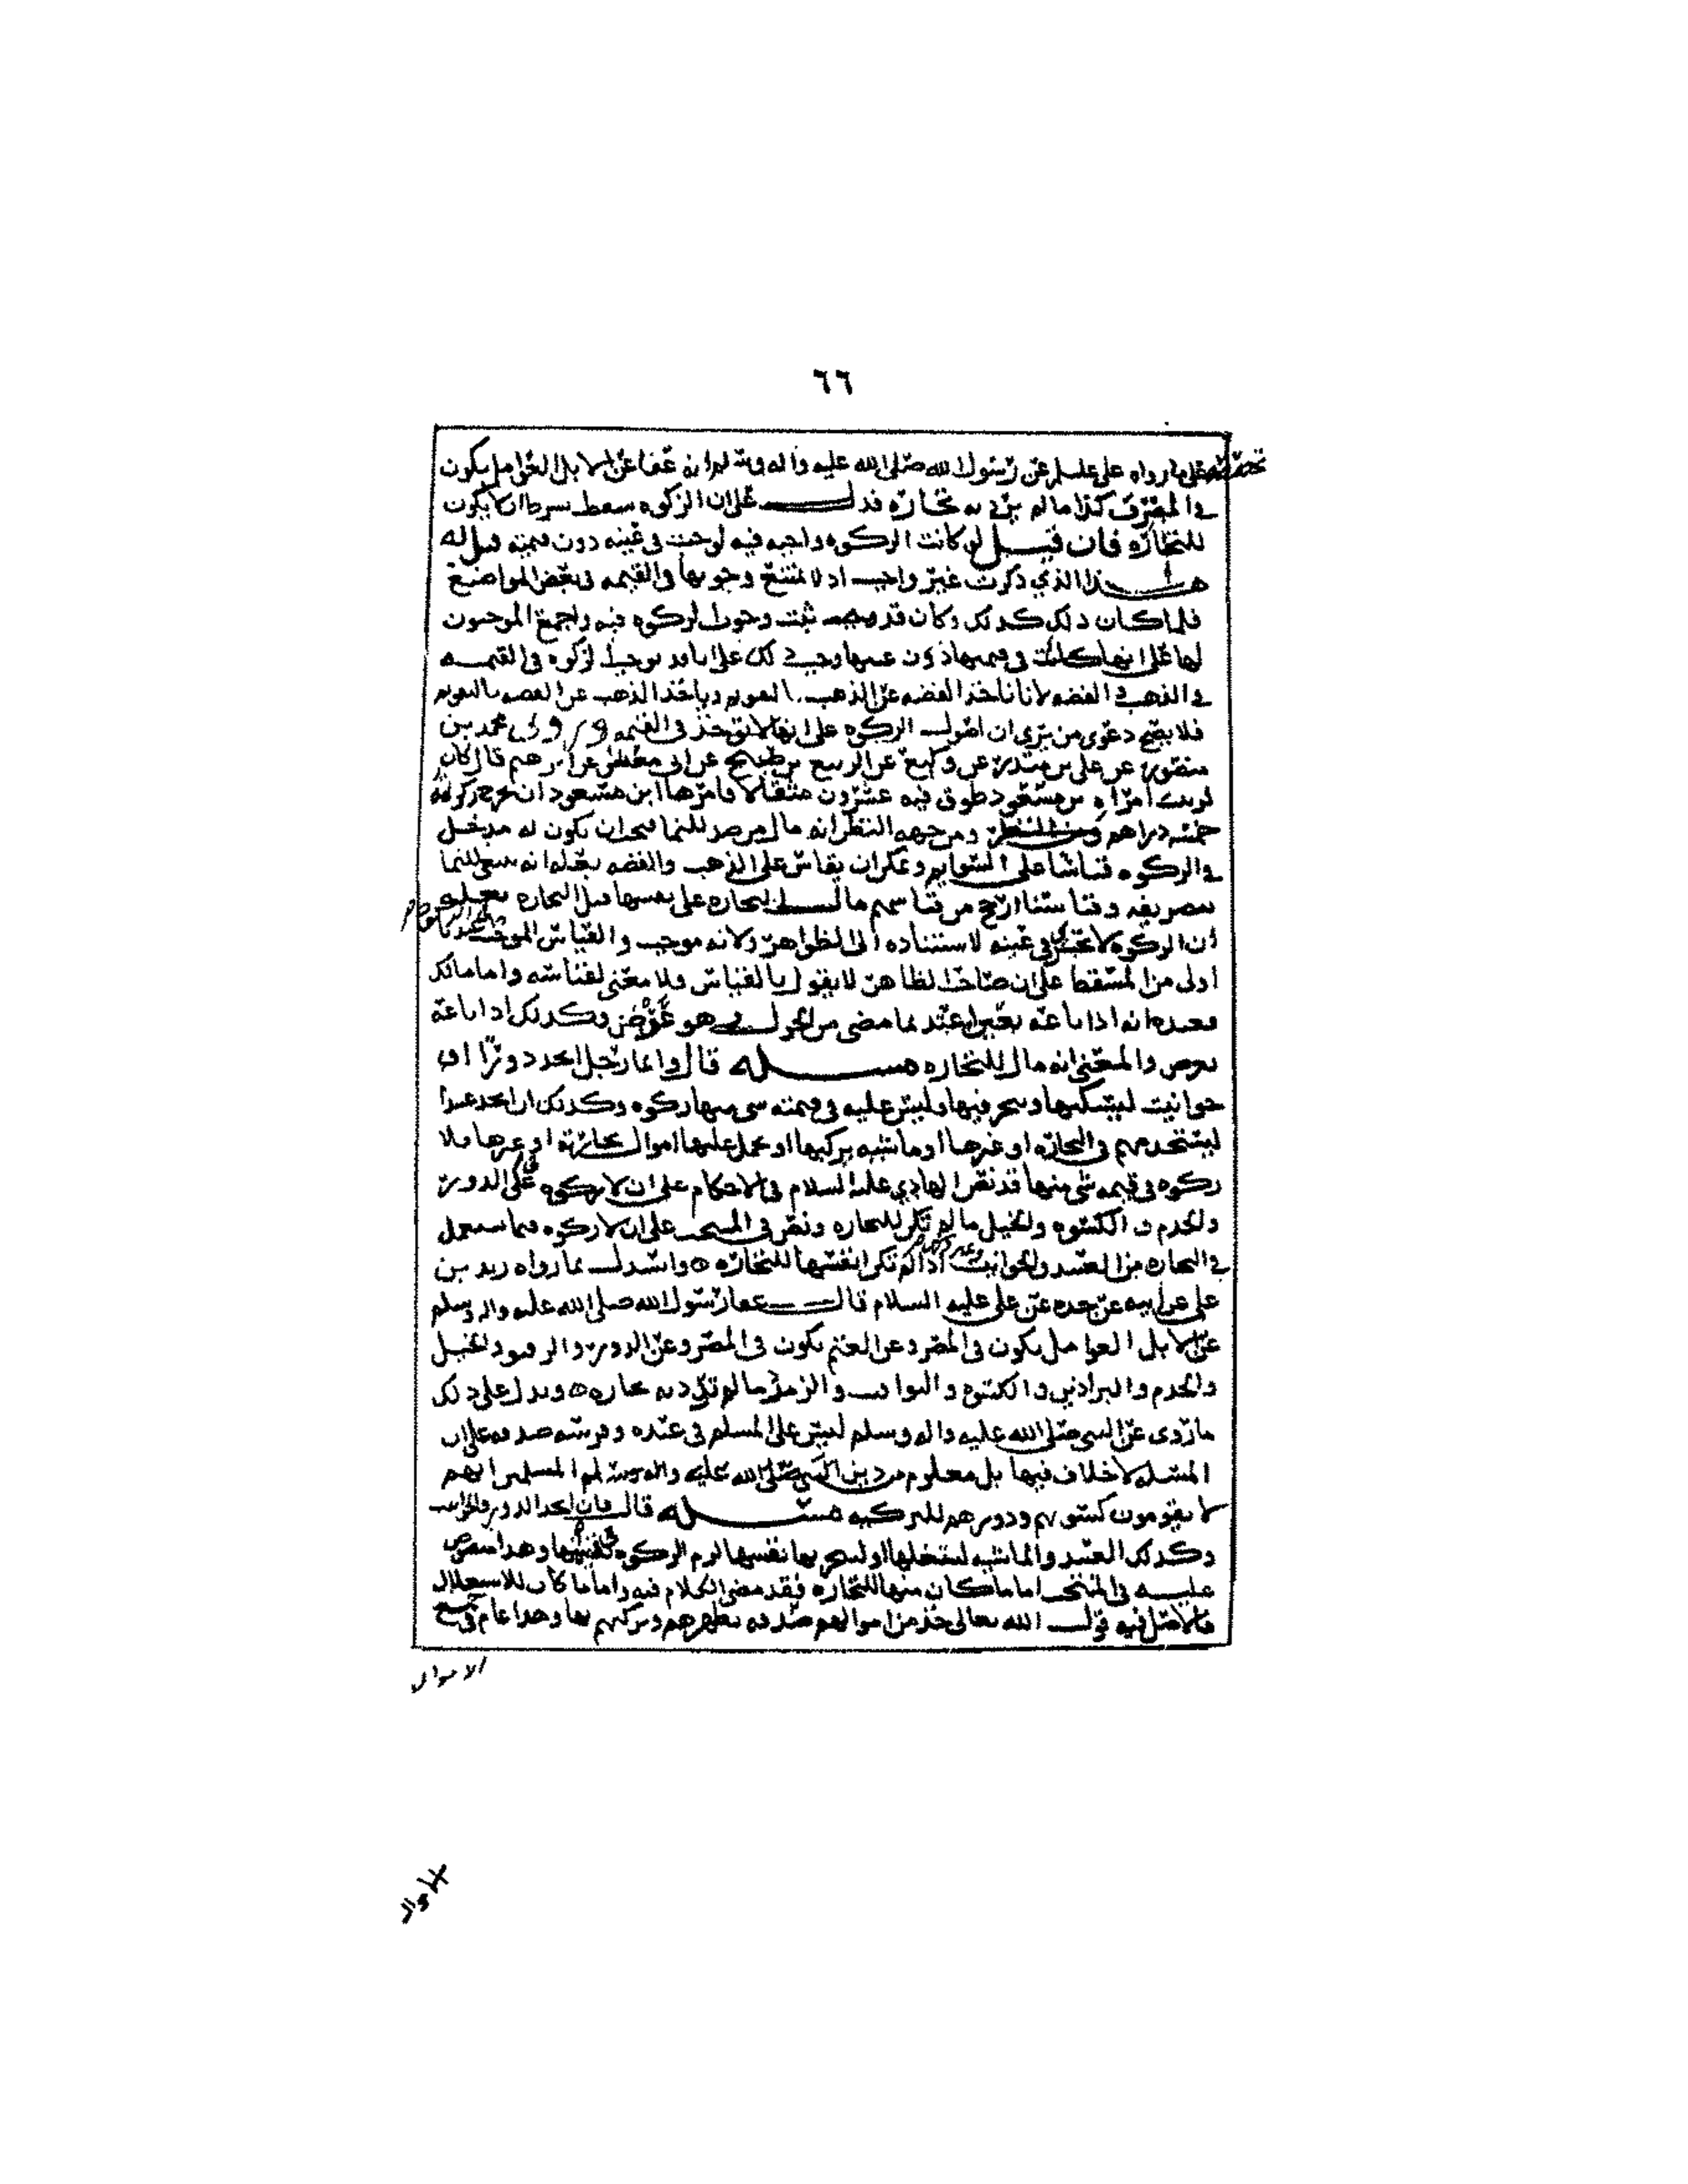 ٦٦
على ما رواه علي عليلم عن رسول الله صلى الله عليه واله وسلم انه عفا عن الابل العوامل يكون
في المصر وكذا ما لم يرد به تجارة فدل على ان الزكوه سقط بشرط ان لا يكون
للتجارة فان قيل لو كانت الزكوه واجبه فيه لوجبت في عينه دون قيمته قيل له
هذا الذي ذكرت غير واجب اذ لا يمتنع وجوبها في القيمه في بعض المواضع
فلما كان ذلك كذلك وكان قد ثبت وجوب الزكوه فيه واجمع الموجبون
لها على انها كانت في قيمتها دون عينها وجب ذلك على انا قد نوجب الزكوه في القيمه
في الذهب والفضه لانا ناخذ الفضه عن الذهب بالتقويم وناخذ الذهب عن الفضه بالتقويم
فلا يصح دعوى من يرى ان اصول الزكوه على انها لا توخذ في القيمه وروى محمد بن
منصور عن علي بن منذر عن وكيع عن الربيع بن صبيح عن ابي معشر عن ابرهيم قال كان
لامراة بن مسعود طوق فيه عشرون مثقالا فامرها ابن مسعود ان تخرج زكوته
خمسه دراهم ومن جهه النظر انه مال مرصد للنما فيجب ان يكون له مدخل
في الزكوه قياسا على السوايم ويمكن ان يقاس على الذهب والفضه بعله انه يبتغى للنما
بتصريفه وقياسنا ارجح من قياسهم مال التجاره على نفسها قبل التجاره بعله
ان الزكوه لا تجب في عينه لاستناده الى الظواهر ولانه موجب والقياس الموجب
اولى من المسقط على ان صاحب الظاهر لا يقول بالقياس فلا معنى لقياسه واما مالك
فعنده انه اذا باعه بعين اعتد بما مضى من الحول هو عرض وكذلك اذا باعه
بعرض والمعنى انه مال للتجاره مسله قال وايما رجل اتخذ دورا او
حوانيت ليسكنها ويتجر فيها فليس عليه في قيمته شي منها زكوه وكذلك ان اتخذ عبيدا
ليستخدمهم في التجاره او غيرها او ماشيه يركبها او يحمل عليها اموال تجارته او غيرها فلا
زكوه في قيمه شي منها قد نص الهادي عليه السلام في الاحكام على ان لا زكوه في الدور
والخدم والكسوه والخيل ما لم تكن للتجاره ونص في المنتخب على ان لا زكوه فيما يستعمل
في التجاره من العبيد والحوانيت اذا لم تكن انفسها للتجاره ٥ واستدل بما رواه زيد بن
علي عن ابيه عن جده عن علي عليه السلام قال عفا رسول الله صلى الله عليه واله وسلم
عن الابل العوامل يكون في المصر وعن الغنم يكون في المصر وعن الدور والرقيق والخيل
والخدم والبراذين والكسوه واليواقيت والزمرد ما لم ترد به تجاره ٥ ويدل على ذلك
ما روى عن النبي صلى الله عليه واله وسلم ليس على المسلم في عبده وفرسه صدقه على ان
المسله لا خلاف فيها بل معلوم من دين النبي صلى الله عليه واله وسلم والمسلمين انهم
لا يقومون كسوتهم ودورهم للتزكيه مسله قال فان اتخذ الدور والحوانيت
وكذلك العبيد والماشيه ليستغلها او ليتجر بها نفسها لزم الزكوه في قيمتها وهذا منصوص
عليه في المنتخب اما ما كان منها للتجاره فقد مضى الكلام فيه واما ما كان للاستغلال
فالاصل فيه قول الله تعالى خذ من اموالهم صدقه تطهرهم وتزكيهم بها وهذا عام في جميع
الاموال
الاموال